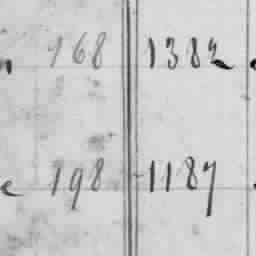 168 1382
198 1187